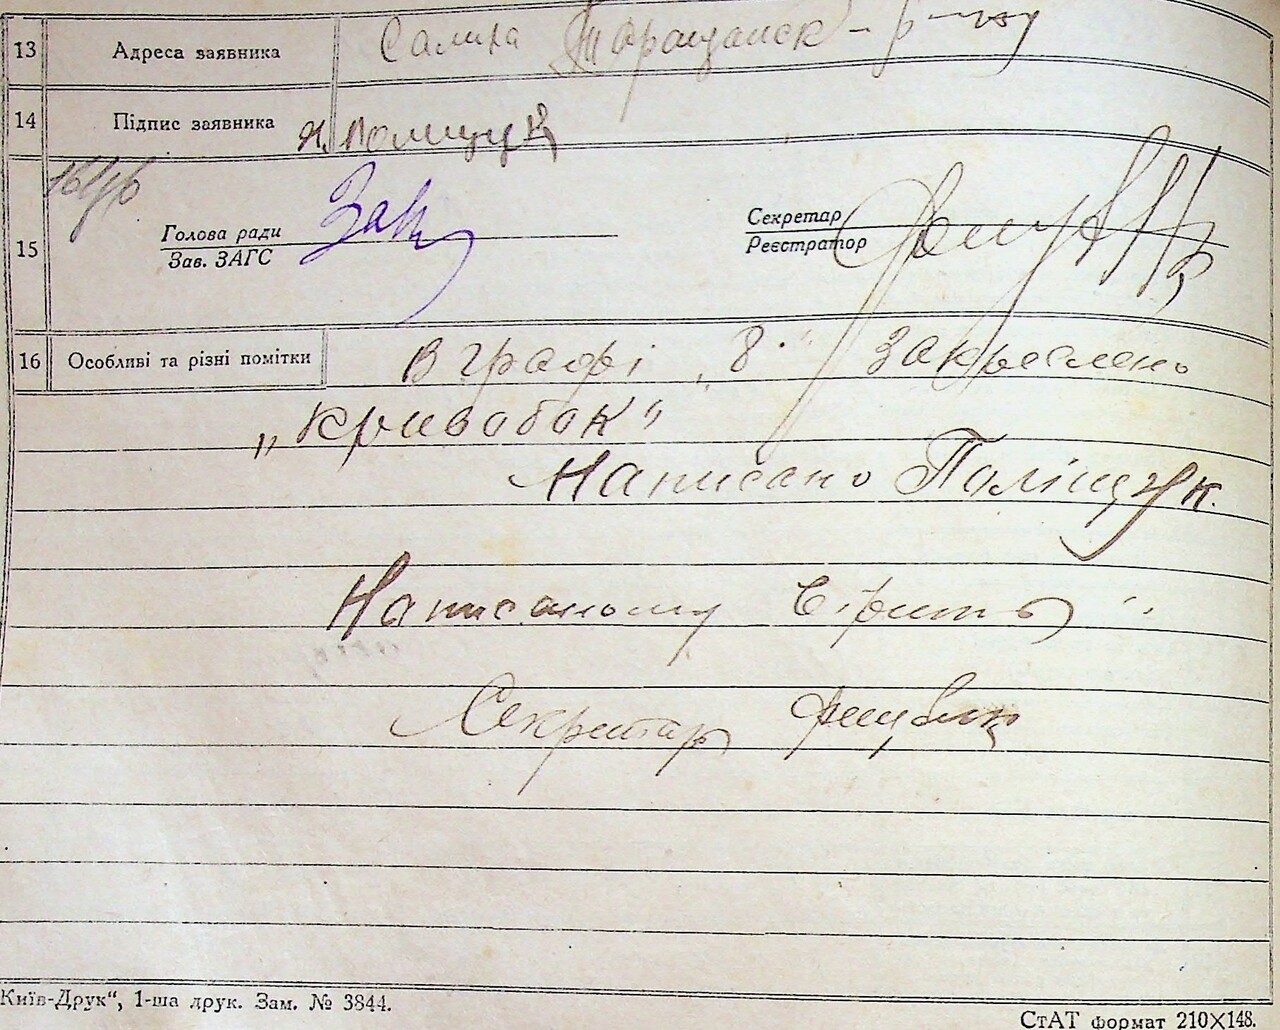 13 Адреса заявника Салиха Таращанск - р-ну
14 Підпис заявника Я. Полищук
15 Голова ради Зак Секретар
Зав. ЗАГС Реєстратор
16 Особливі та різні помітки В графі „8" закреслено
„Кривобок"
Написано Поліщук.
Написаному вірить
Секретар
Київ-Друк", 1-ша друк. Зам. № 3844.
СтАТ формат 210X148.